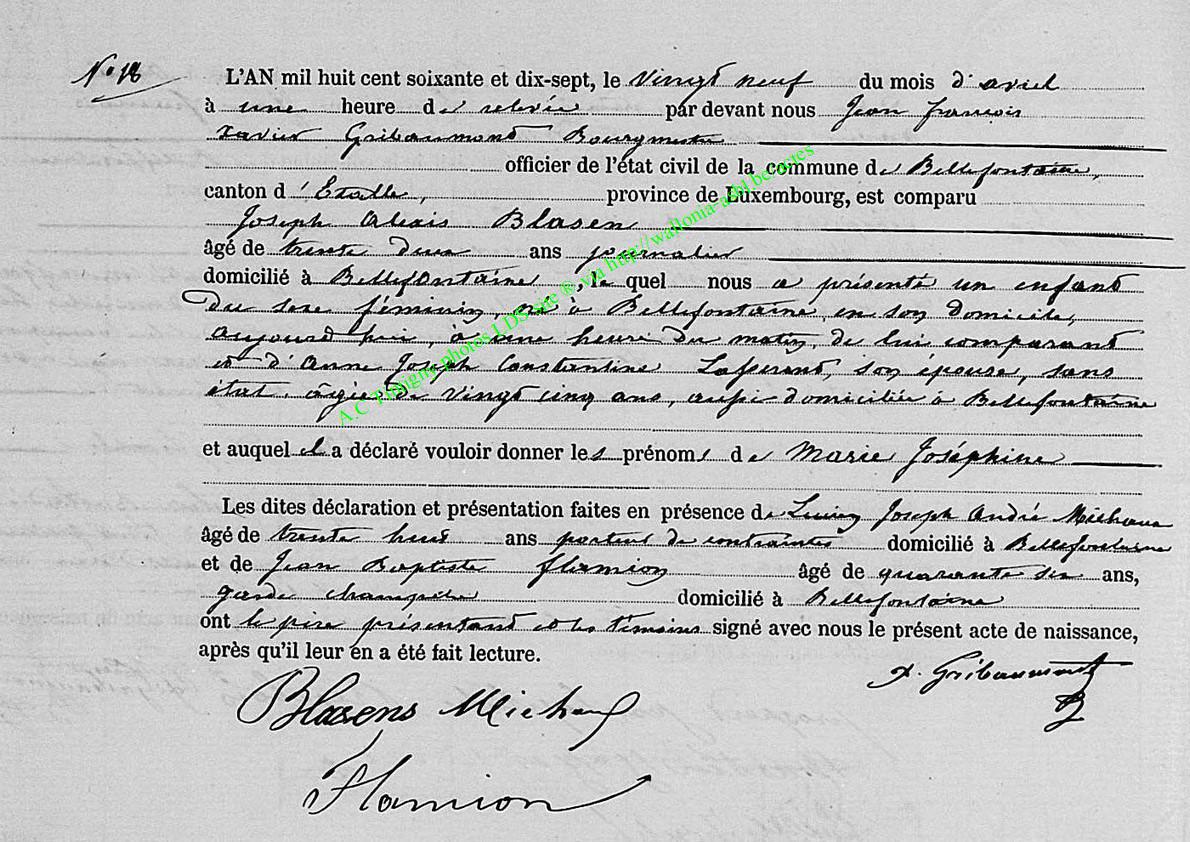 N° 18
L'AN mil huit cent soixante et dix-sept, le vingt neuf du mois d'avril
à une heure de relevée par devant nous Jean françois
xavier Gribaumont Bourgmestre
officier de l'état civil de la commune de Bellefontaine,
canton d'Etalle, province de Luxembourg, est comparu
Joseph Alexis Blasen
âgé de trente deux ans journalier
domicilié à Bellefontaine, le quel nous a présenté un enfant
du sexe féminin, né à Bellefontaine, en son domicile,
aujourd'hui, à une heure du matin, de lui comparant
et d'Anne Joseph Constantine son épouse, sans
état, âgée de vingt cinq ans, aussi domiciliée à Bellefontaine
et auquel il a déclaré vouloir donner les prénoms de Marie Joséphine
Les dites déclaration et présentation faites en présence de Joseph André Michaux
âgé de trente huit ans porteur de contraintes domicilié à Bellefontaine
et de Jean Baptiste flamion âgé de quarante six ans,
garde champêtre domicilié à Bellefontaine
ont le père présentant et les témoins signé avec nous le présent acte de naissance,
après qu'il leur en a été fait lecture.
x. Gribaumont
Blasens Michaux
Flamion